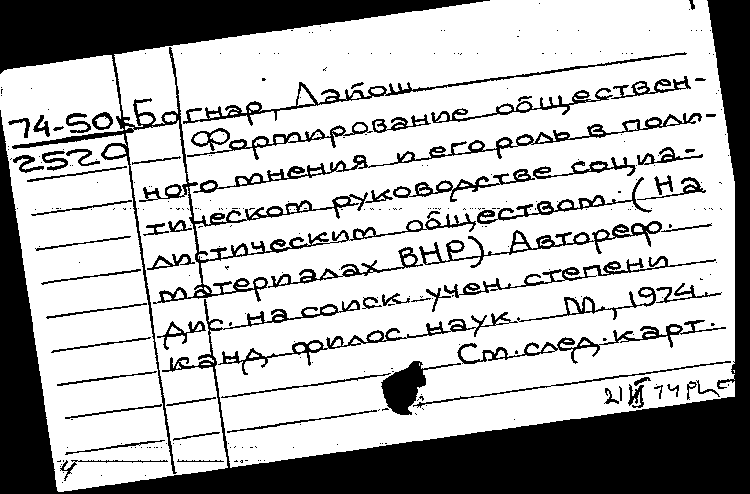 74-50к Богнар, Лайош
2520 Формирование обществен-
ного мнения и его роль в поли-
тическом руководстве социа-
листическим обществом. (На
материалах ВНР). Автореф.
дис. на соиск. учен. степени
канд. филос. наук. М., 1974.
См. след. карт.
4